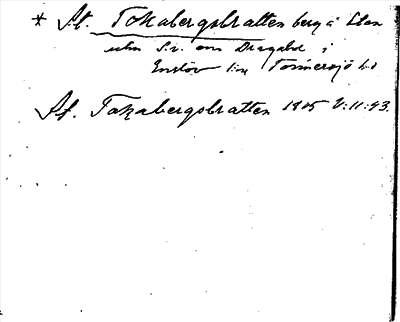 * St. Tokabergsbratten berg å Elan
utm S.v. om Dragabol i
Enslöv s:n Tönnersjö h:d
St. Takabergsbratten 1805 V:11:43.